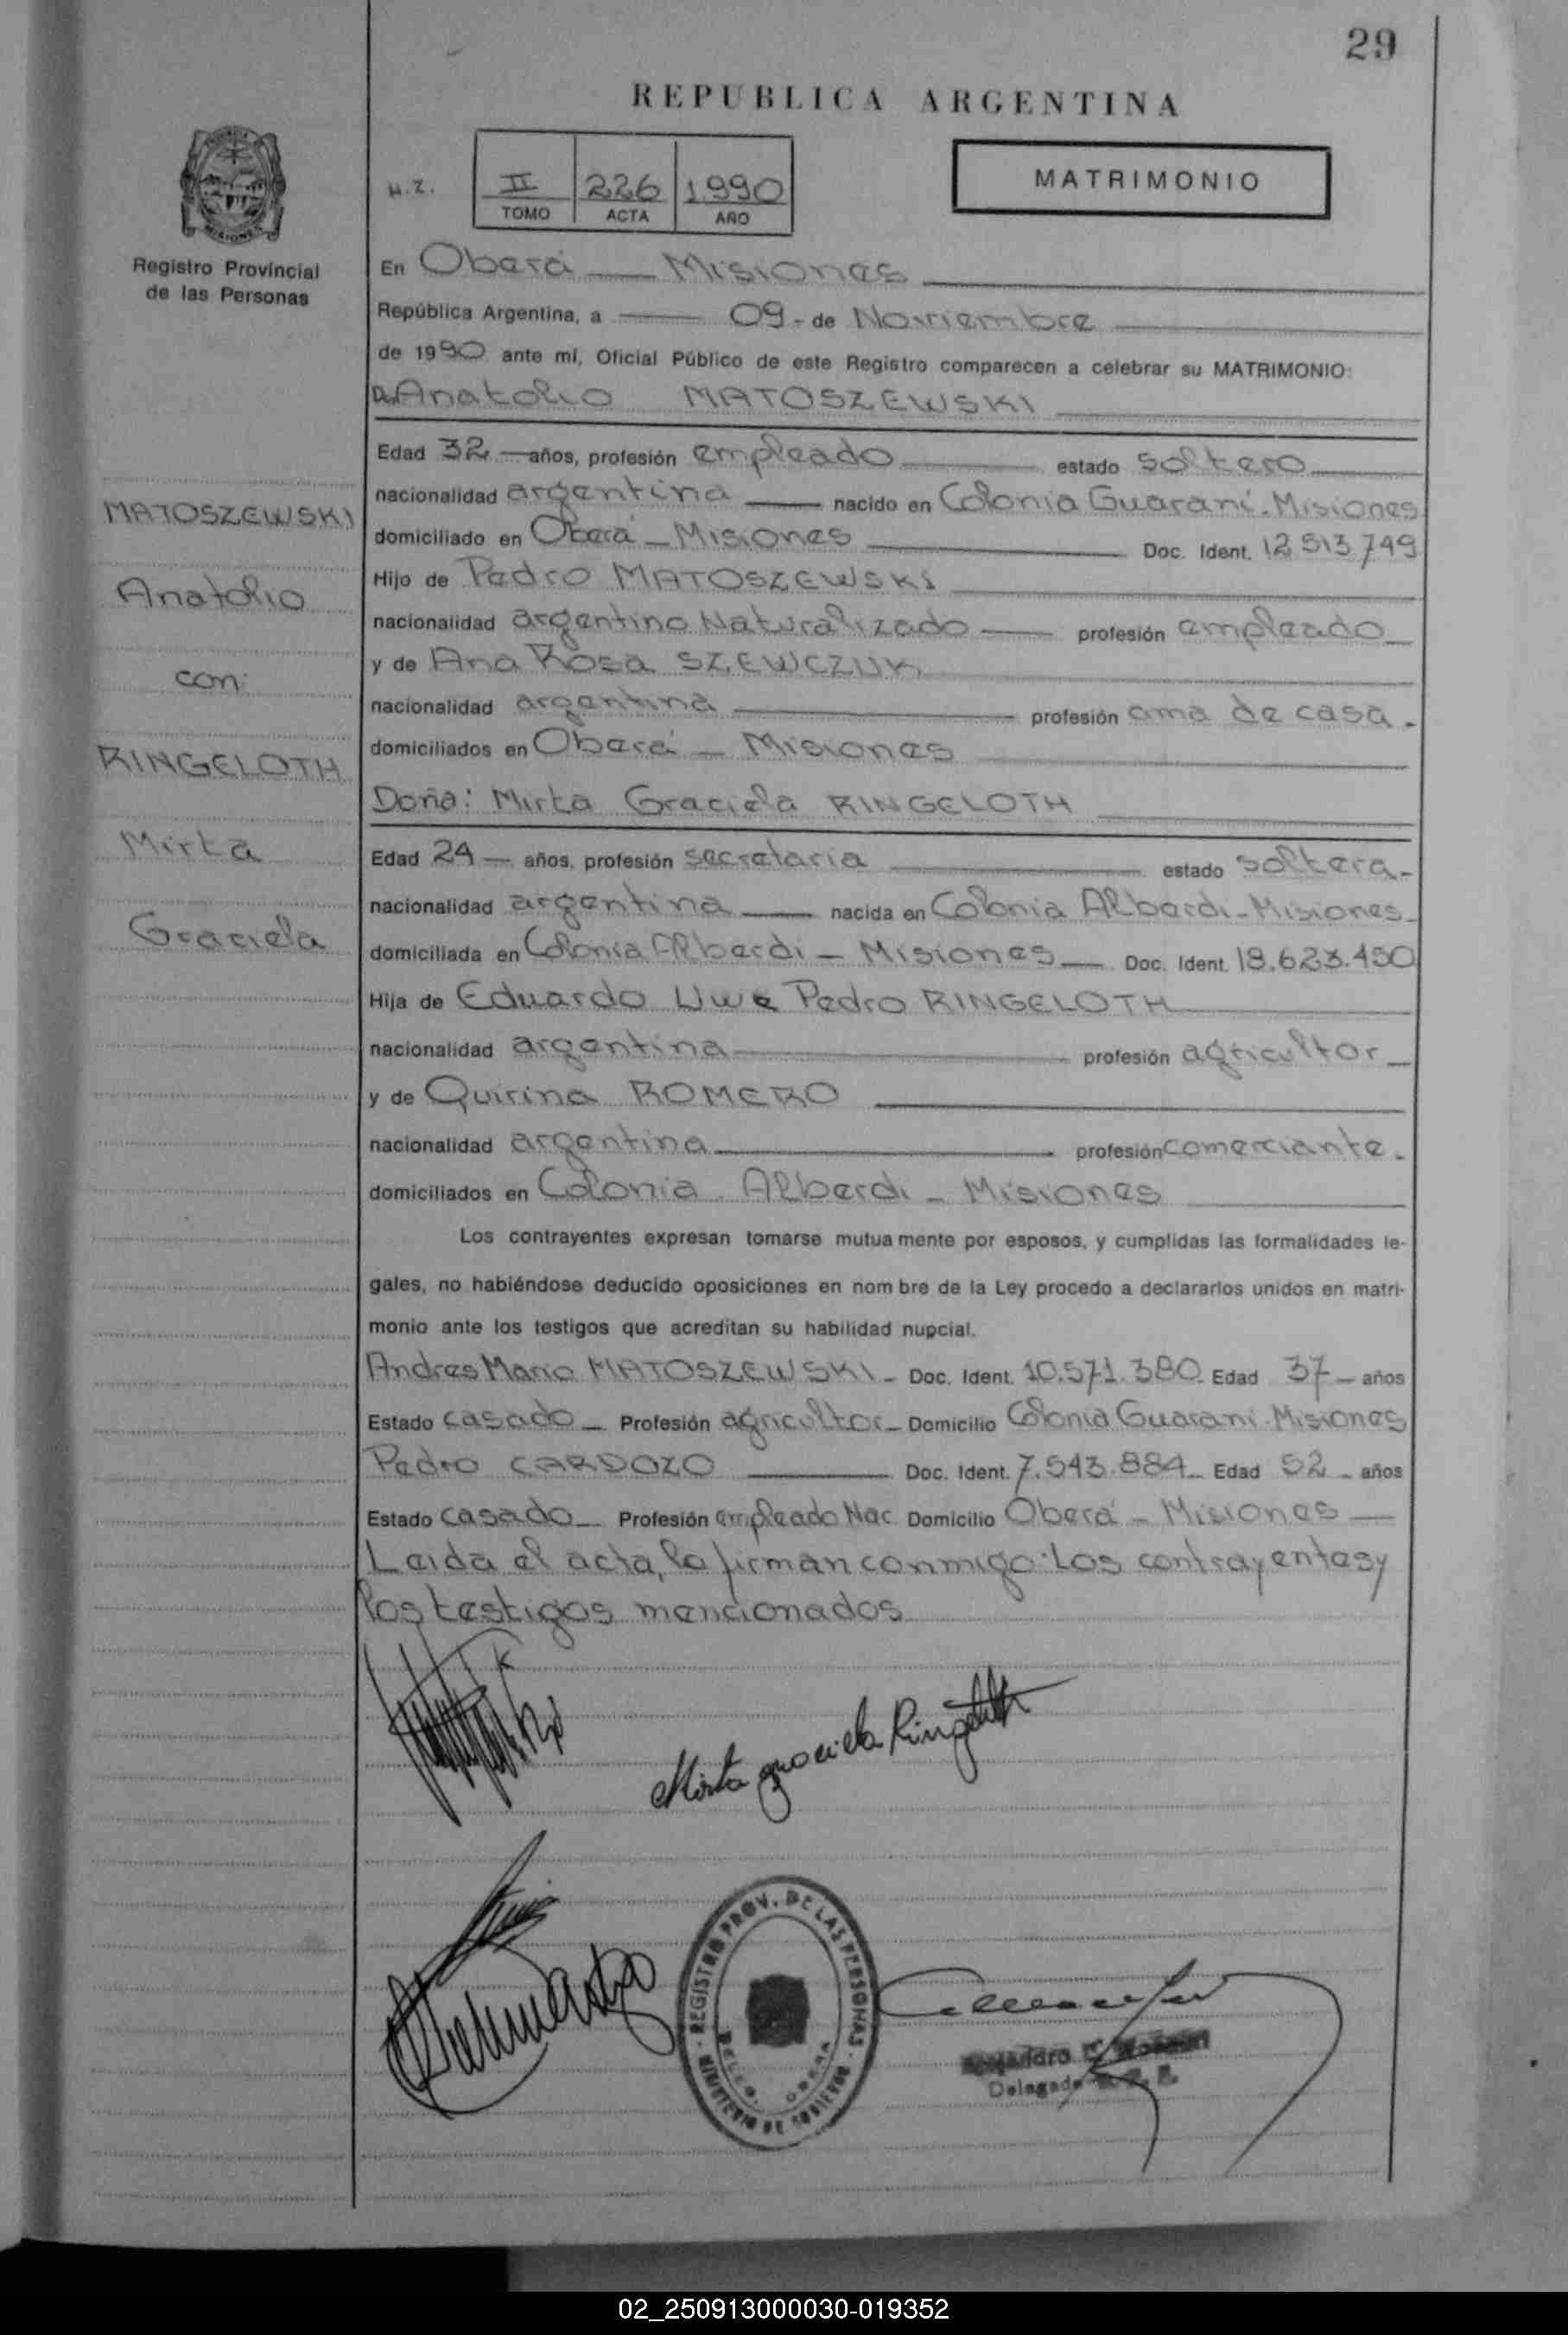 29
REPUBLICA ARGENTINA
MATRIMONIO
H.Z. II 226 1990
TOMO ACTA AÑO
Registro Provincial
de las Personas
En Oberá — Misiones
República Argentina, a — 09 - de Noviembre
de 1990 ante mí, Oficial Público de este Registro comparecen a celebrar su MATRIMONIO:
D. Anatolio MATOSZEWSKI
Edad 32 — años, profesión empleado — estado soltero
nacionalidad argentina — nacido en Colonia Guaraní - Misiones
domiciliado en Oberá - Misiones — Doc. Ident. 12.513.749
Hijo de Pedro MATOSZEWSKI
nacionalidad argentino Naturalizado — profesión empleado
y de Ana Rosa SZEWCZUK
nacionalidad argentina — profesión ama de casa -
domiciliados en Oberá - Misiones
Doña: Mirta Graciela RINGELOTH
Edad 24 — años, profesión secretaria — estado soltera -
nacionalidad argentina — nacida en Colonia Alberdi - Misiones -
domiciliada en Colonia Alberdi - Misiones — Doc. Ident. 18.623.450
Hija de Eduardo Uwe Pedro RINGELOTH
nacionalidad argentina — profesión agricultor
y de Quirina ROMERO
nacionalidad argentina — profesión comerciante -
domiciliados en Colonia Alberdi - Misiones
Los contrayentes expresan tomarse mutuamente por esposos, y cumplidas las formalidades le-
gales, no habiéndose deducido oposiciones en nombre de la Ley procedo a declararlos unidos en matri-
monio ante los testigos que acreditan su habilidad nupcial.
Andres Mario MATOSZEWSKI - Doc. Ident. 10.571.380 Edad 37 - años
Estado casado - Profesión agricultor - Domicilio Colonia Guaraní - Misiones
Pedro CARDOZO — Doc. Ident. 7.543.884 - Edad 52 - años
Estado casado - Profesión empleado Nac. Domicilio Oberá - Misiones —
Leida el acta, la firman conmigo: Los contrayentes y
los testigos mencionados
MATOSZEWSKI
Anatolio
con:
RINGELOTH
Mirta
Graciela
Mirta graciela Ringeloth
REGISTRO PROV. DE LAS PERSONAS
MINISTERIO DE GOBIERNO
OBERA
Alejandro
Delegado
02_250913000030-019352